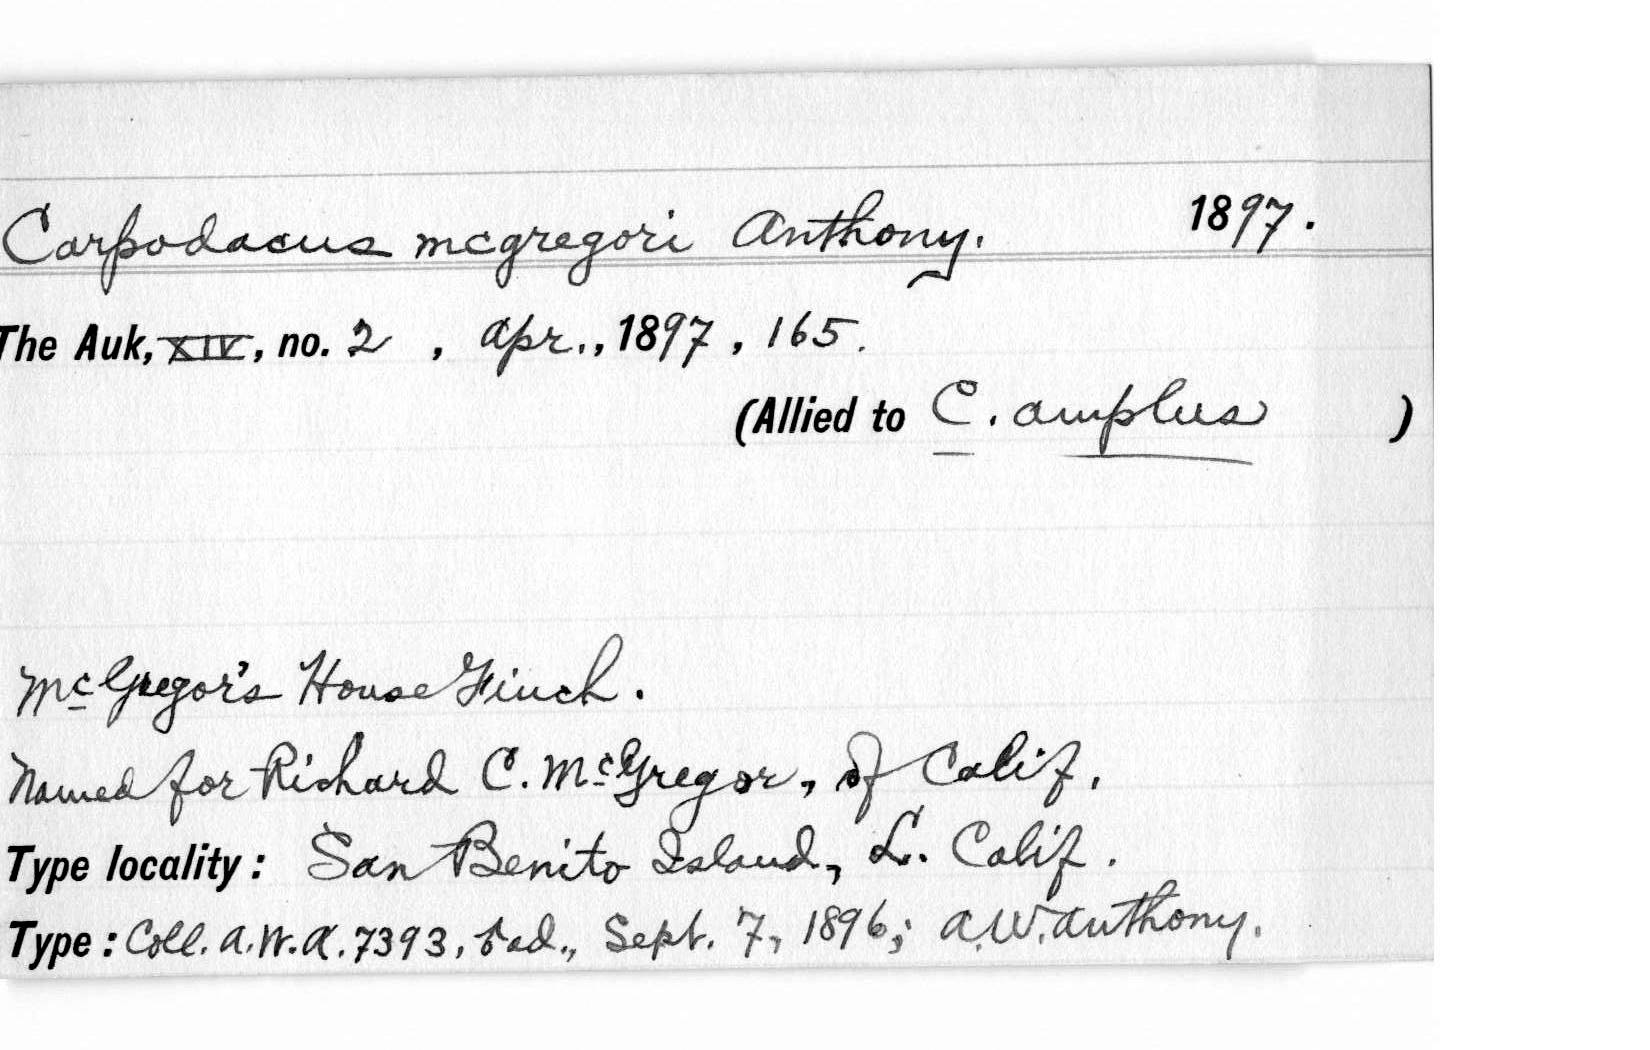 Carpodacus mcgregori Anthony. 1897.
The Auk, XIV, no. 2 , Apr., 1897 , 165.
(Allied to C. amplus )
McGregor's House Finch.
Named for Richard C. McGregor, of Calif.
Type locality: San Benito Island, L. Calif.
Type: Coll. A.W.A. 7393, ad., Sept. 7, 1896; A.W. Anthony.